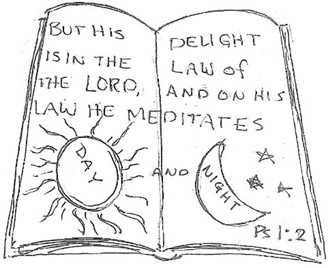 BUT HIS DELIGHT
IS IN THE LAW of
THE LORD, AND ON HIS
LAW HE MEDITATES
DAY AND NIGHT
Ps 1:2